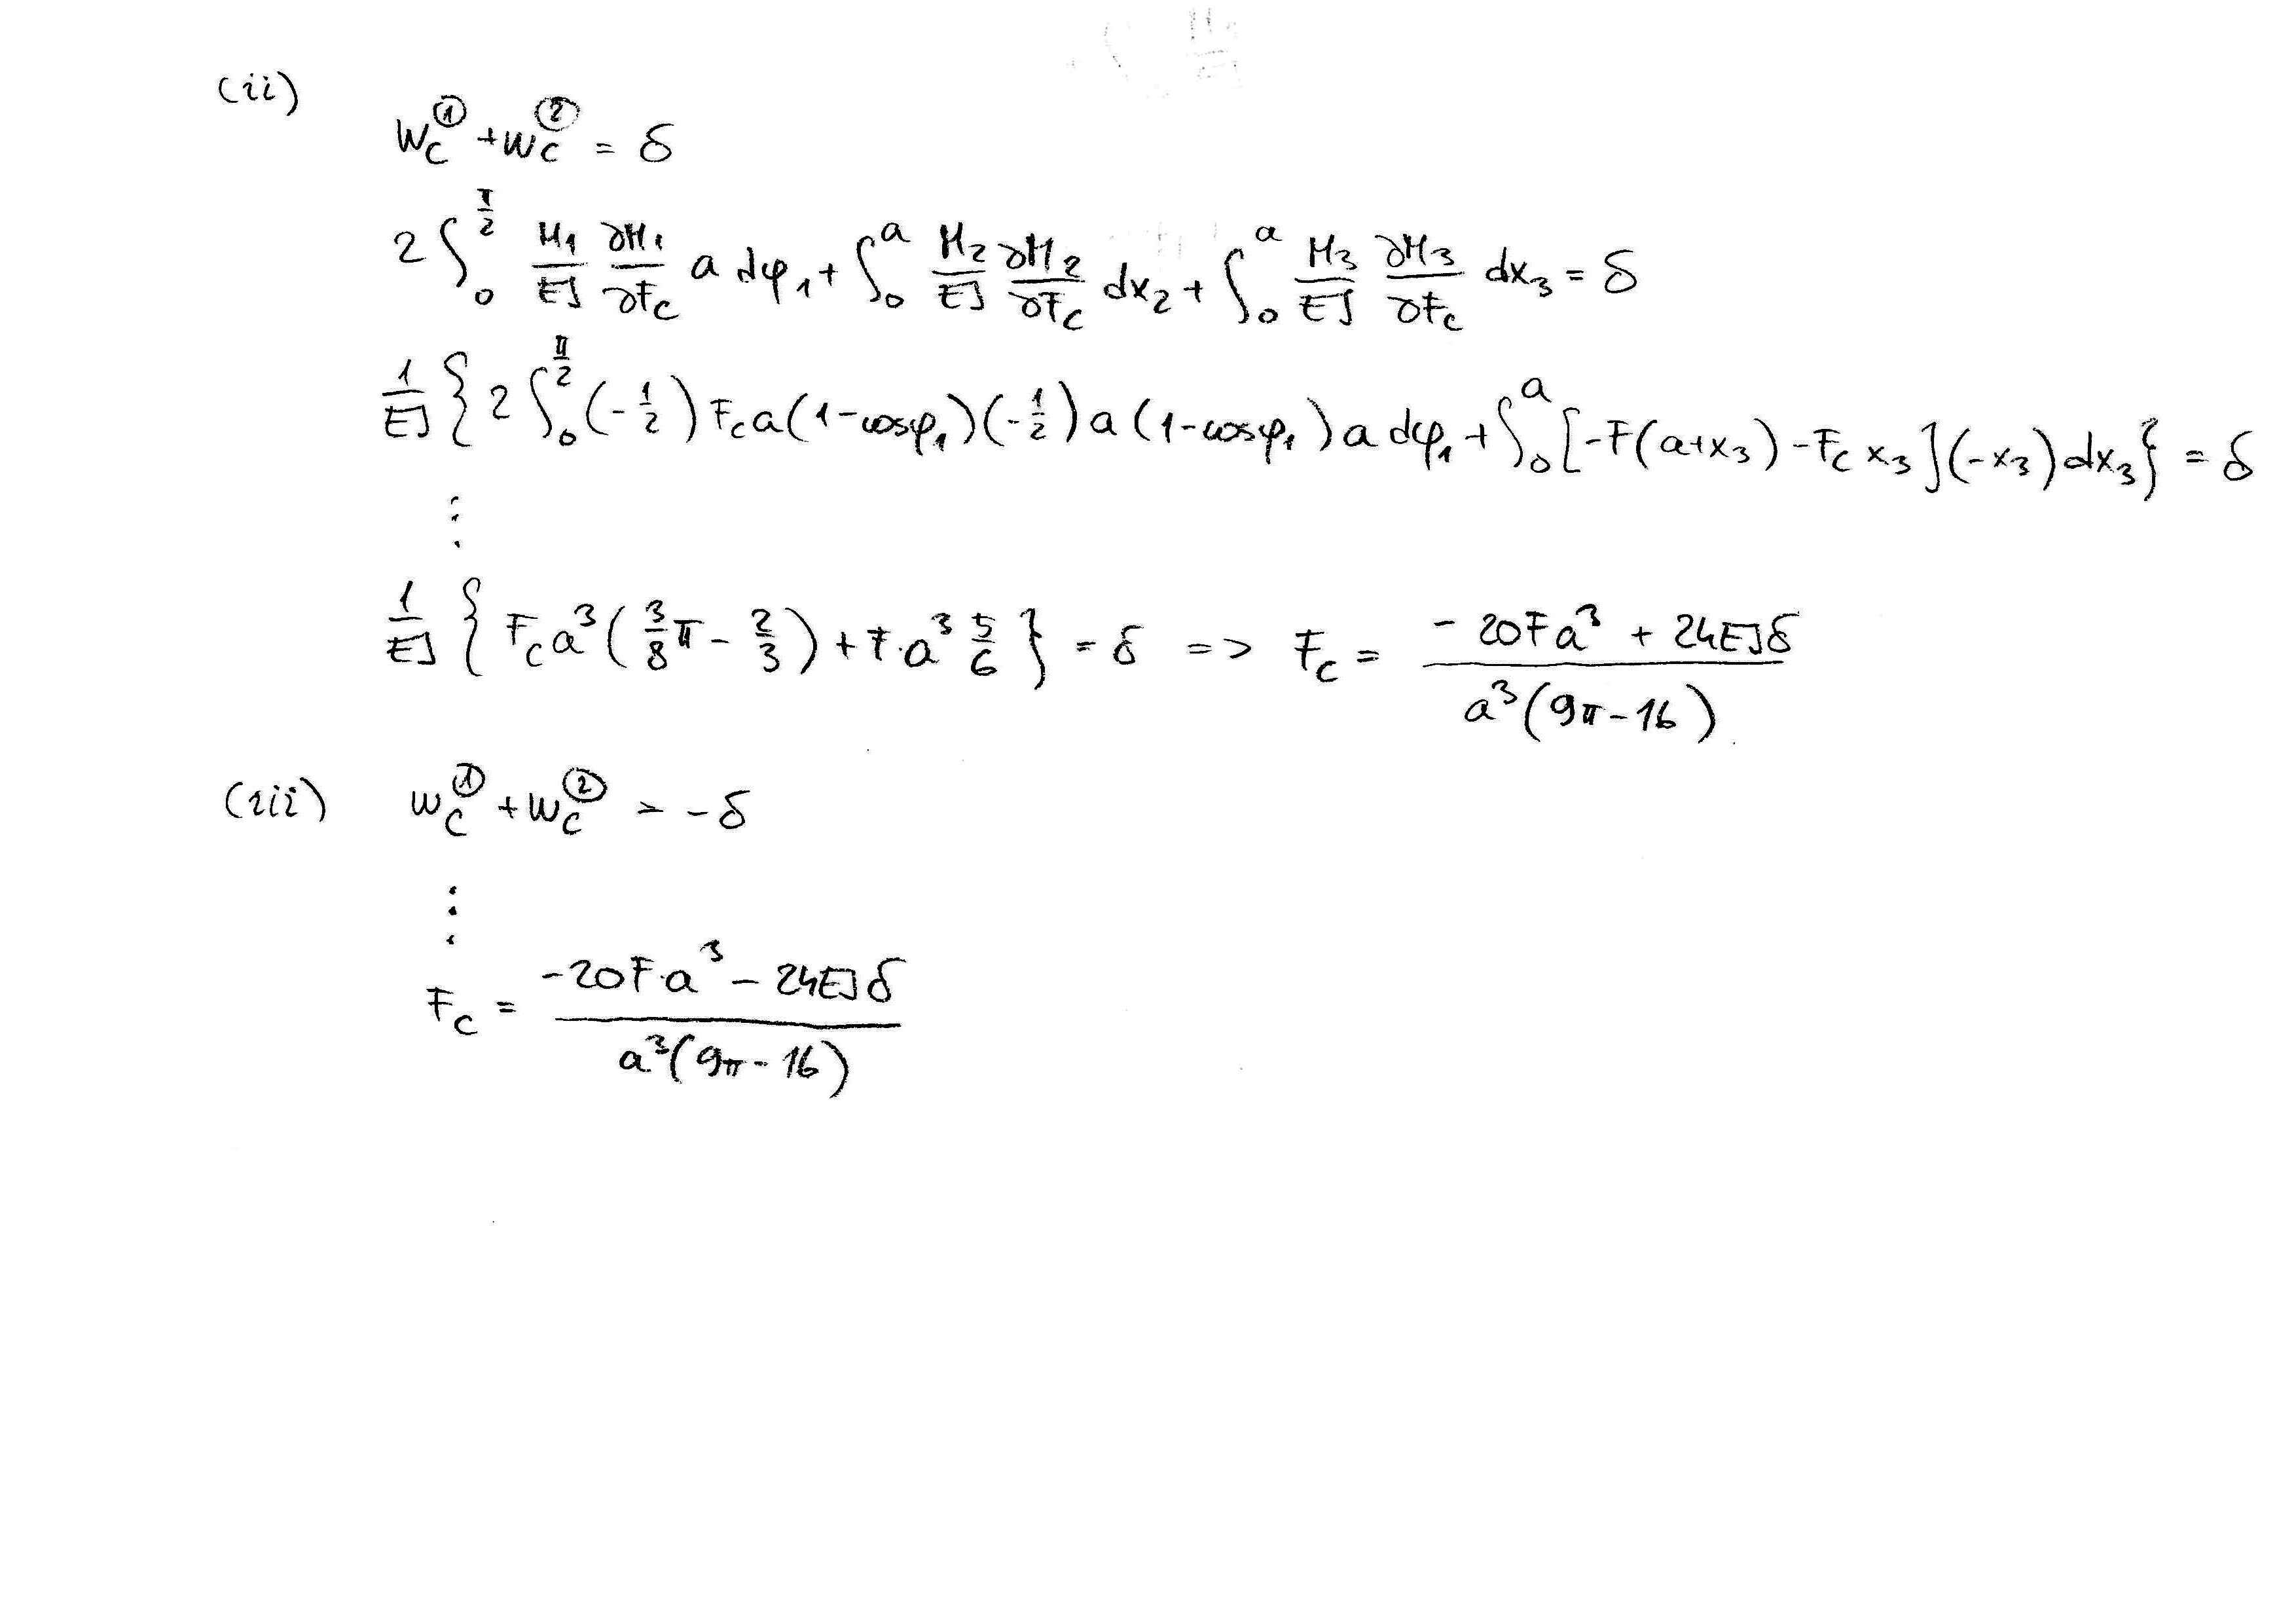 (ii)
w_C^① + w_C^② = δ
2 ∫_0^{π/2} M_1/EJ ∂M_1/∂F_C a dφ_1 + ∫_0^a M_2/EJ ∂M_2/∂F_C dx_2 + ∫_0^a M_3/EJ ∂M_3/∂F_C dx_3 = δ
1/EJ { 2 ∫_0^{π/2} (-1/2) F_C a (1-cosφ_1) (-1/2) a (1-cosφ_1) a dφ_1 + ∫_0^a [-F(a+x_3) - F_C x_3] (-x_3) dx_3 } = δ
⋮
1/EJ { F_C a^3 (3/8 π - 2/3) + F·a^3 5/6 } = δ => F_C = (-20Fa^3 + 24EJδ) / (a^3(9π-16))
(iii) w_C^① + w_C^② = -δ
⋮
F_C = (-20F·a^3 - 24EJδ) / (a^3(9π-16))